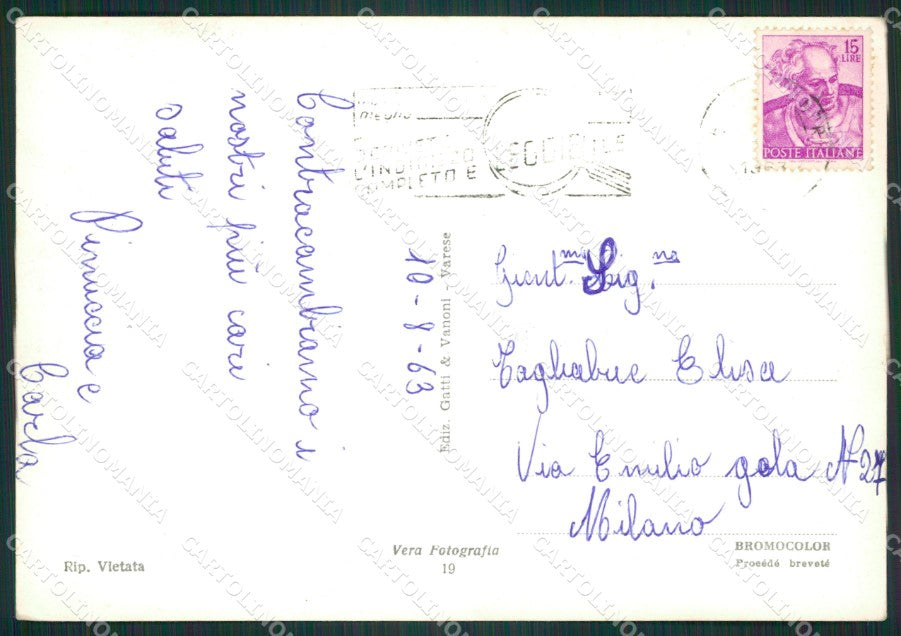 Contracambiamo i
nostri più cari
saluti
Pinuccia e
Carla
10-8-63
Ediz. Gatti & Vanoni - Varese
15
LIRE
POSTE ITALIANE
L'IND
COMPLETO E LEGGIBILE
Gent.ma Sig.na
Tagliabue Elisa
Via Emilio gola N 27
Milano
Rip. Vietata
Vera Fotografia
19
BROMOCOLOR
Procédé breveté
CARTOLINOMANIA